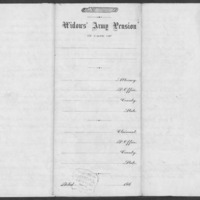 Widows' Army Pension
Attorney.
P. Office
County
State
Claimant.
P. Office
County
State
Filed 186